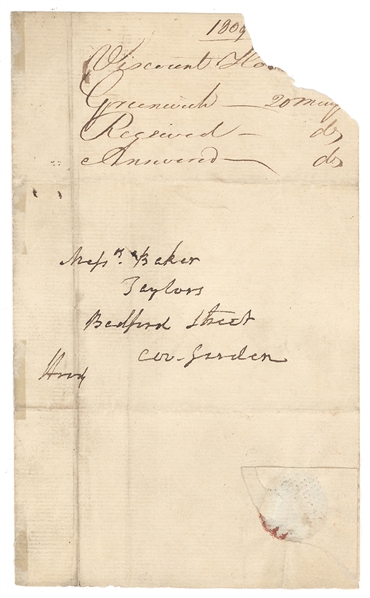 1809
Viscount Ho
Greenwich — 20 May
Received — do
Answered — do
Messrs. Baker
Taylors
Bedford Street
Cov. Garden
Hood